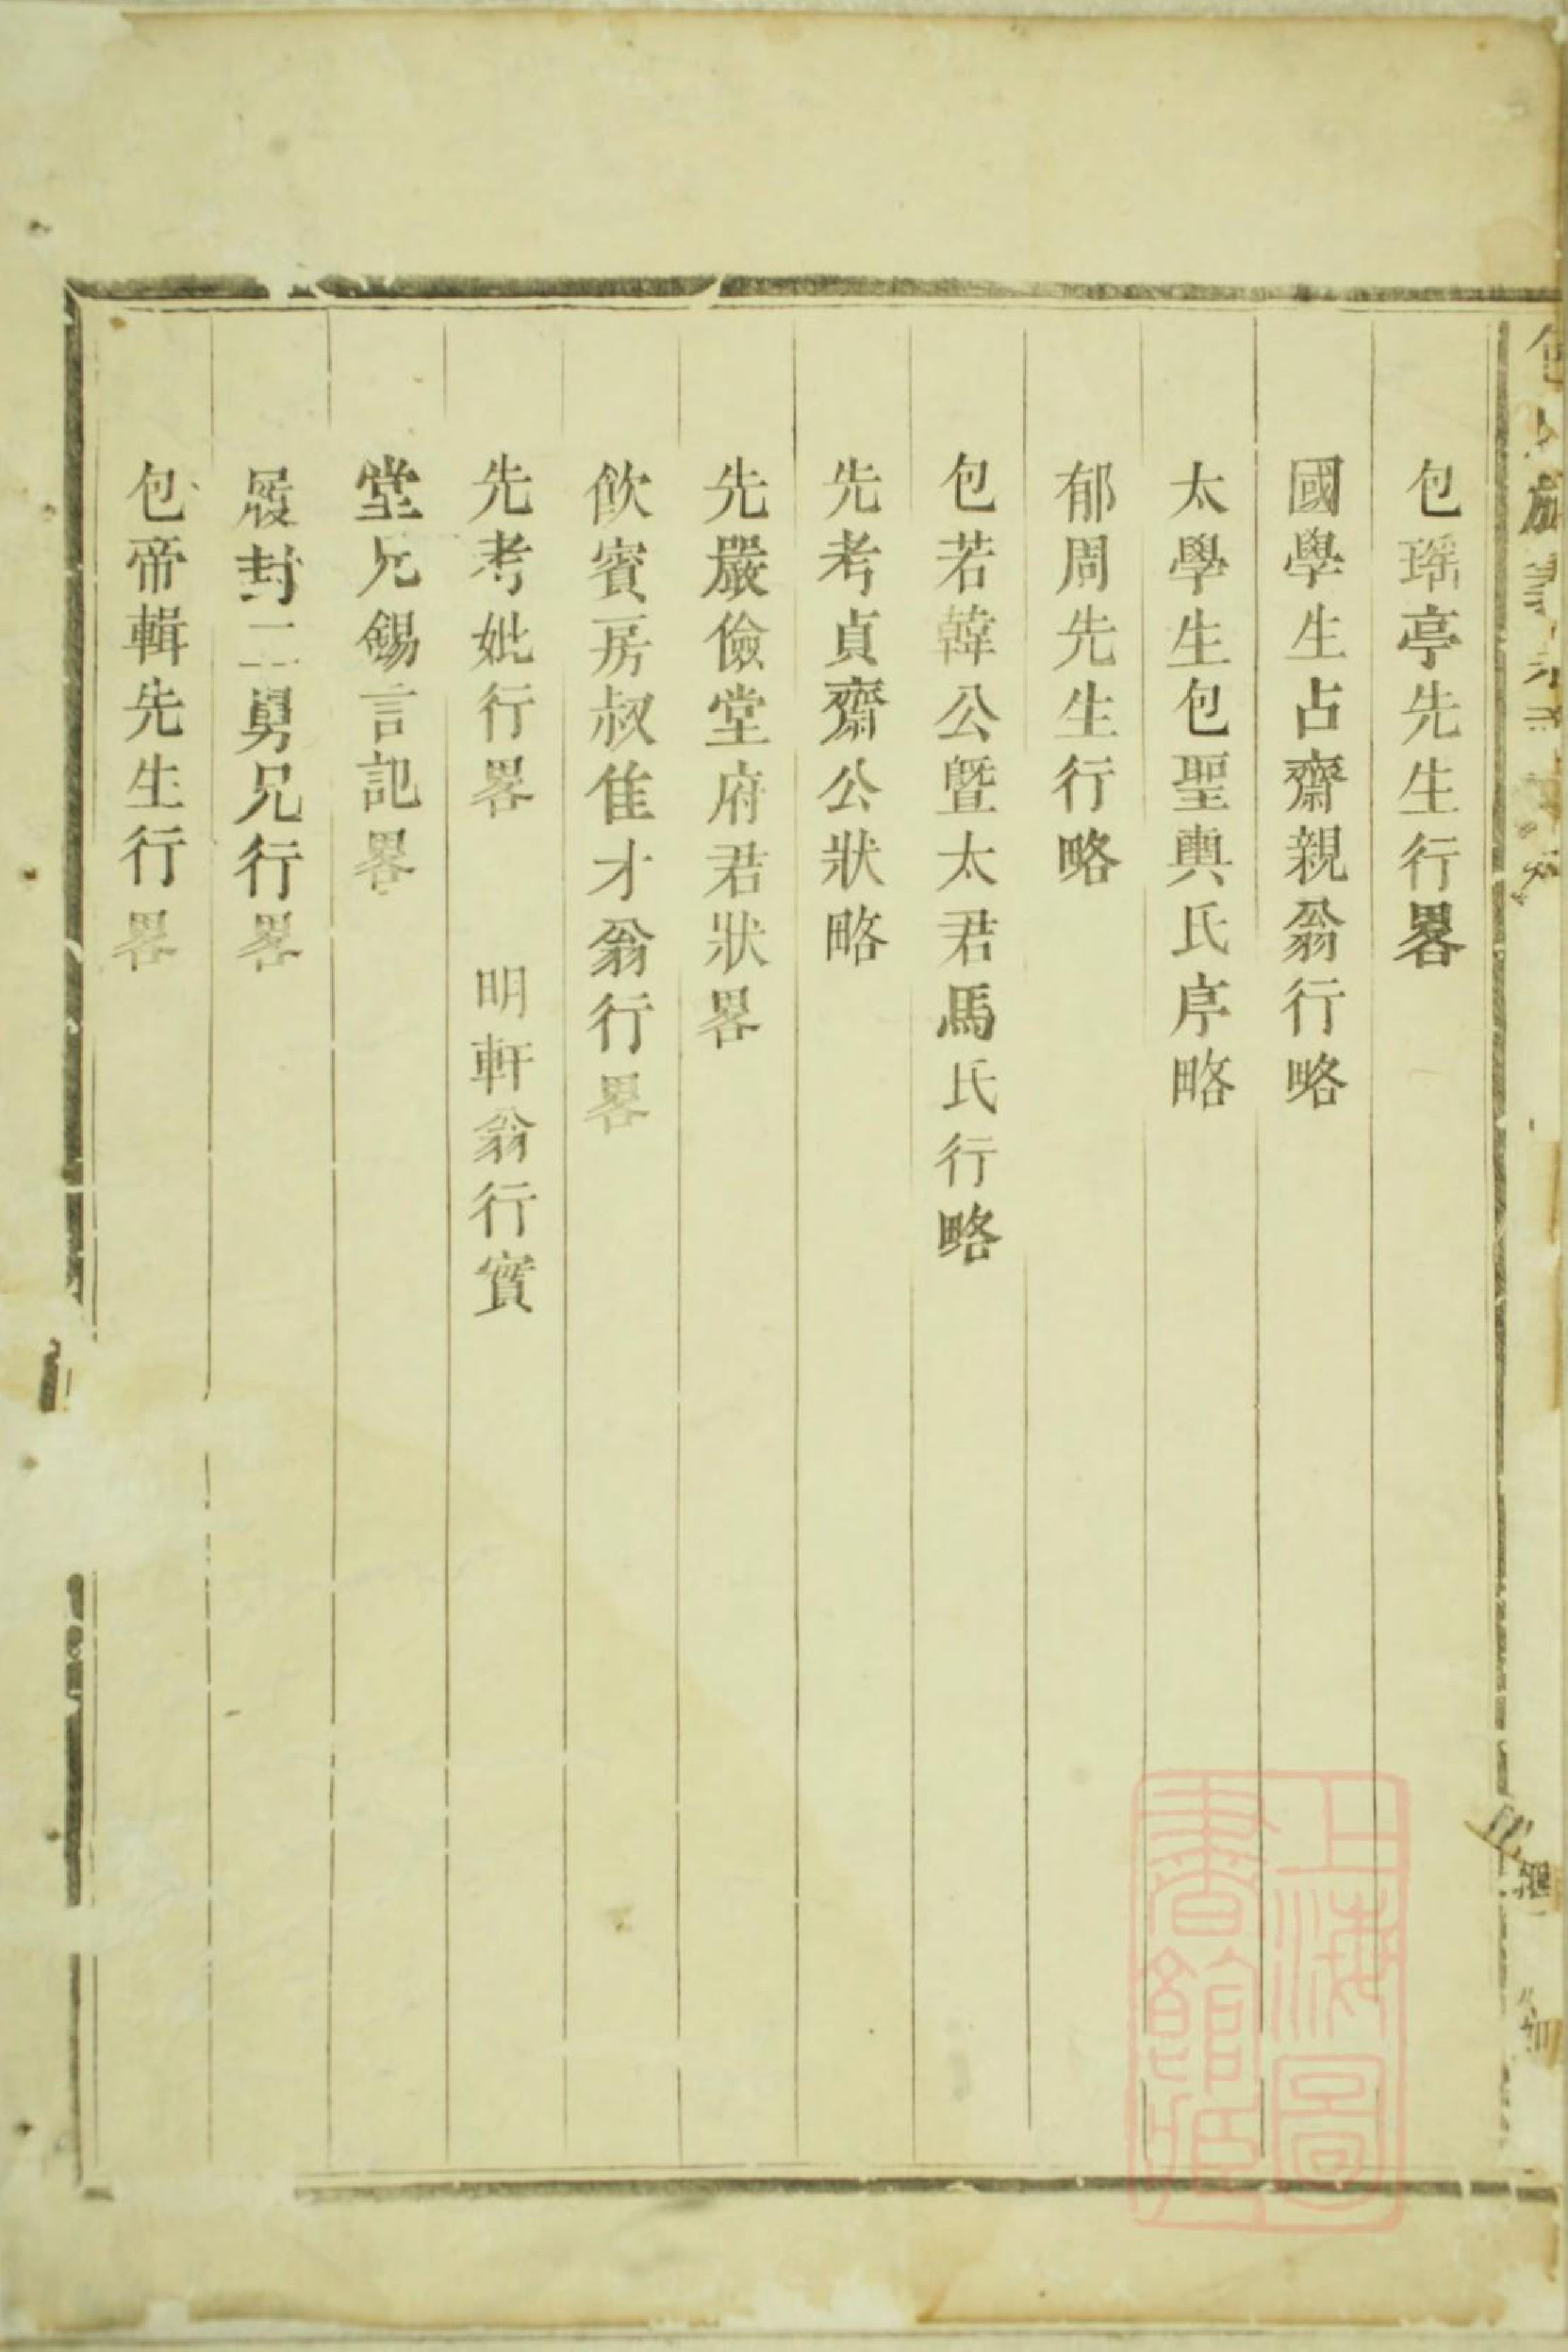 包瑶亭先生行畧
國學生占齋親翁行略
太學生包聖輿氏序略
郁周先生行略
包若韓公暨太君馬氏行略
先考貞齋公狀略
先嚴儉堂府君狀畧
飲賓房叔隹才翁行畧
先考妣行畧　明軒翁行實
堂兄錫言記畧
履封二舅兄行畧
包帝輯先生行畧
上海圖書館藏